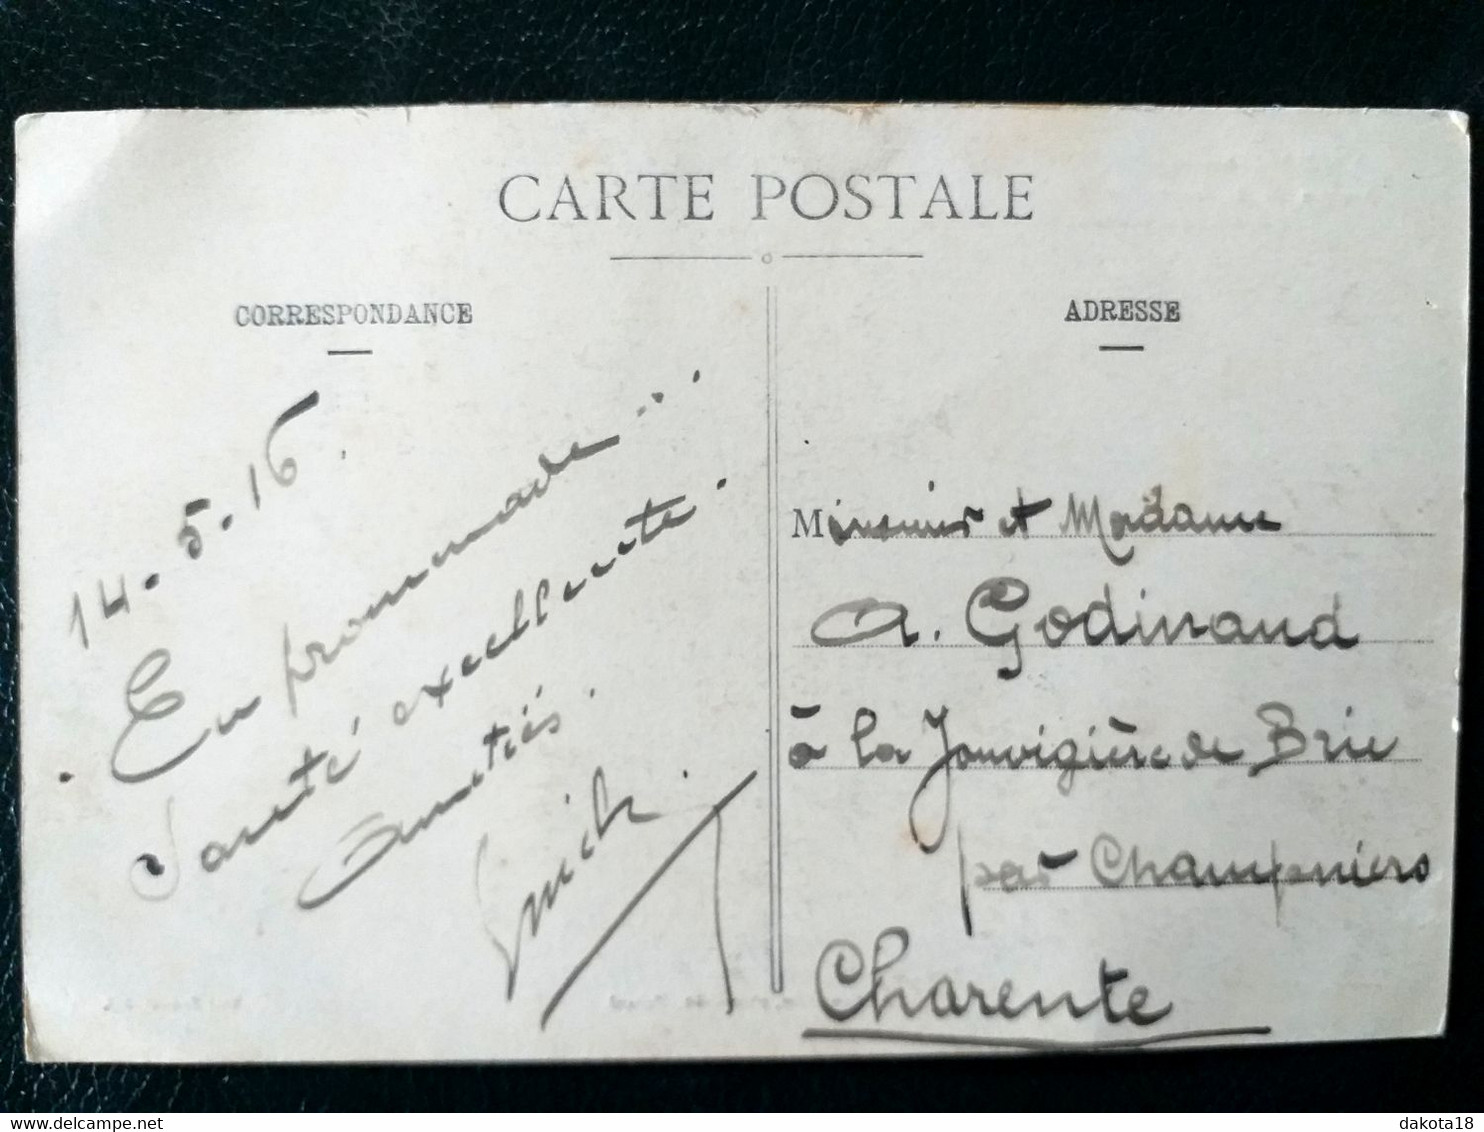 CARTE POSTALE
CORRESPONDANCE
14.5.16.
En promenade...
Santé excellente.
Amitiés.
Emile.
ADRESSE
Monsieur et Madame
A. Godinaud
à la Jauvigière de Brie
par Champniers
Charente
dakota18